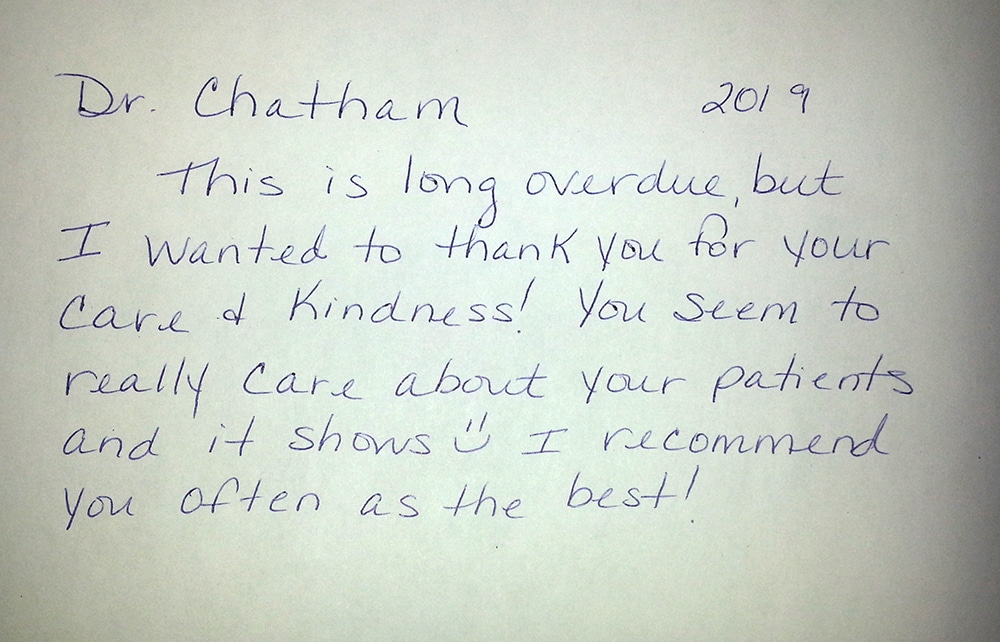 Dr. Chatham 2019
This is long overdue, but
I wanted to thank you for your
Care & Kindness! You seem to
really care about your patients
and it shows ü I recommend
you often as the best!